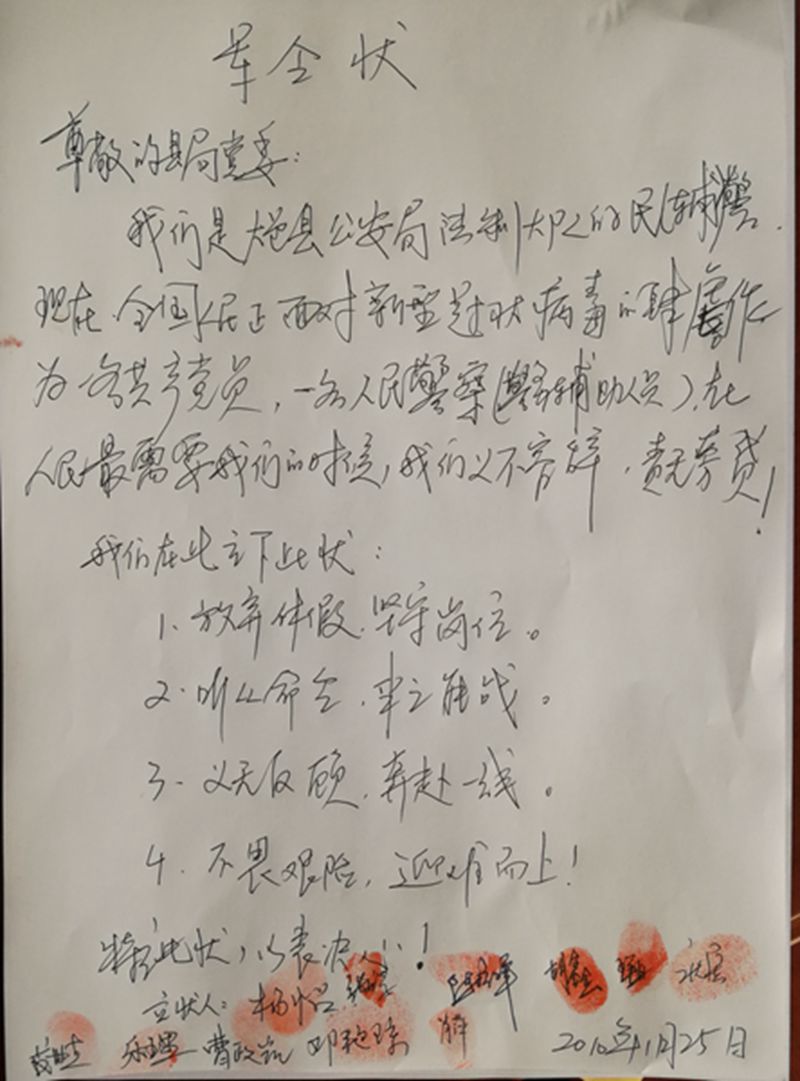 军令状
尊敬的县局党委：
我们是大邑县公安局法制大队的民辅警.
现在,全国人民正面对新型冠状病毒的肆虐作
为一名共产党员，一名人民警察(警务辅助人员),在
人民最需要我们的时候,我们义不容辞,责无旁贷!
我们在此立下此状:
1、放弃休假,坚守岗位。
2.听从命令,来之能战。
3.义无反顾,奔赴一线。
4.不畏艰险,迎难而上!
特立此状,以表决心!
立状人:
曹政凯
2020年1月25日